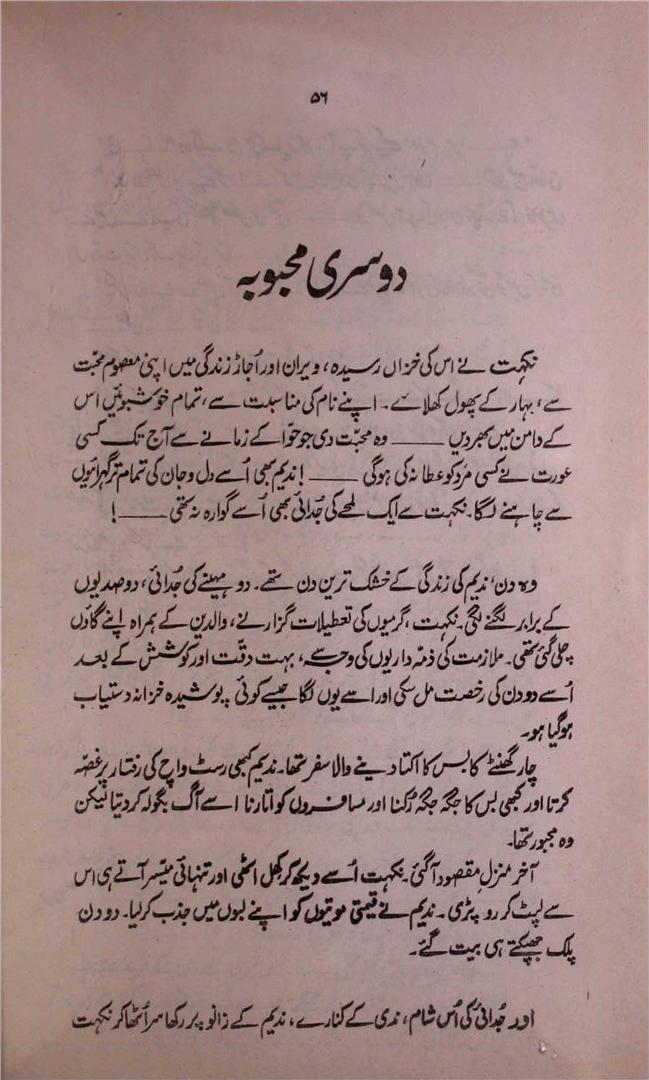 ۵۶
دوسری محبوبہ
نکہت نے اس کی خزاں رسیدہ، ویران اور اُجاڑ زندگی میں اپنی معصوم محبّت
سے، بہار کے پھول کھلائے۔ اپنے نام کی مناسبت سے، تمام خوشبوئیں اس
کے دامن میں بھر دیں ——— وہ محبّت دی جو حوّا کے زمانے سے آج تک کسی
عورت نے کسی مرد کو عطا نہ کی ہوگی ——— ! ندیم بھی اُسے دل و جان کی تمام تر گہرائیوں
سے چاہنے لگا۔ نکہت سے ایک لمحے کی جُدائی بھی اُسے گوارہ نہ تھی ——— !
وہ دن، ندیم کی زندگی کے خشک ترین دن تھے۔ دو مہینے کی جُدائی، دو صدیوں
کے برابر لگنے لگی۔ نکہت، گرمیوں کی تعطیلات گزارنے، والدین کے ہمراہ اپنے گاؤں
چلی گئی تھی۔ ملازمت کی ذمّہ داریوں کی وجہ سے، بہت دقّت اور کوشش کے بعد
اُسے دو دن کی رخصت مل سکی اور اسے یوں لگا جیسے کوئی پوشیدہ خزانہ دستیاب
ہوگیا ہو۔
چار گھنٹے کا بس کا اکتا دینے والا سفر تھا۔ ندیم کبھی رسٹ واچ کی رفتار پر غصّہ
کرتا اور کبھی بس کا جگہ جگہ رُکنا اور مسافروں کو اتارنا اسے آگ بگولہ کر دیتا لیکن
وہ مجبور تھا۔
آخر منزلِ مقصود آگئی۔ نکہت اُسے دیکھ کر کھل اٹھی اور تنہائی میسّر آتے ہی اس
سے لپٹ کر رو پڑی۔ ندیم نے قیمتی موتیوں کو اپنے لبوں میں جذب کرلیا۔ دو دن
پلک جھپکتے ہی بیت گئے۔
اور جُدائی کی اُس شام، ندی کے کنارے، ندیم کے زانو پر رکھا سر اُٹھا کر نکہت